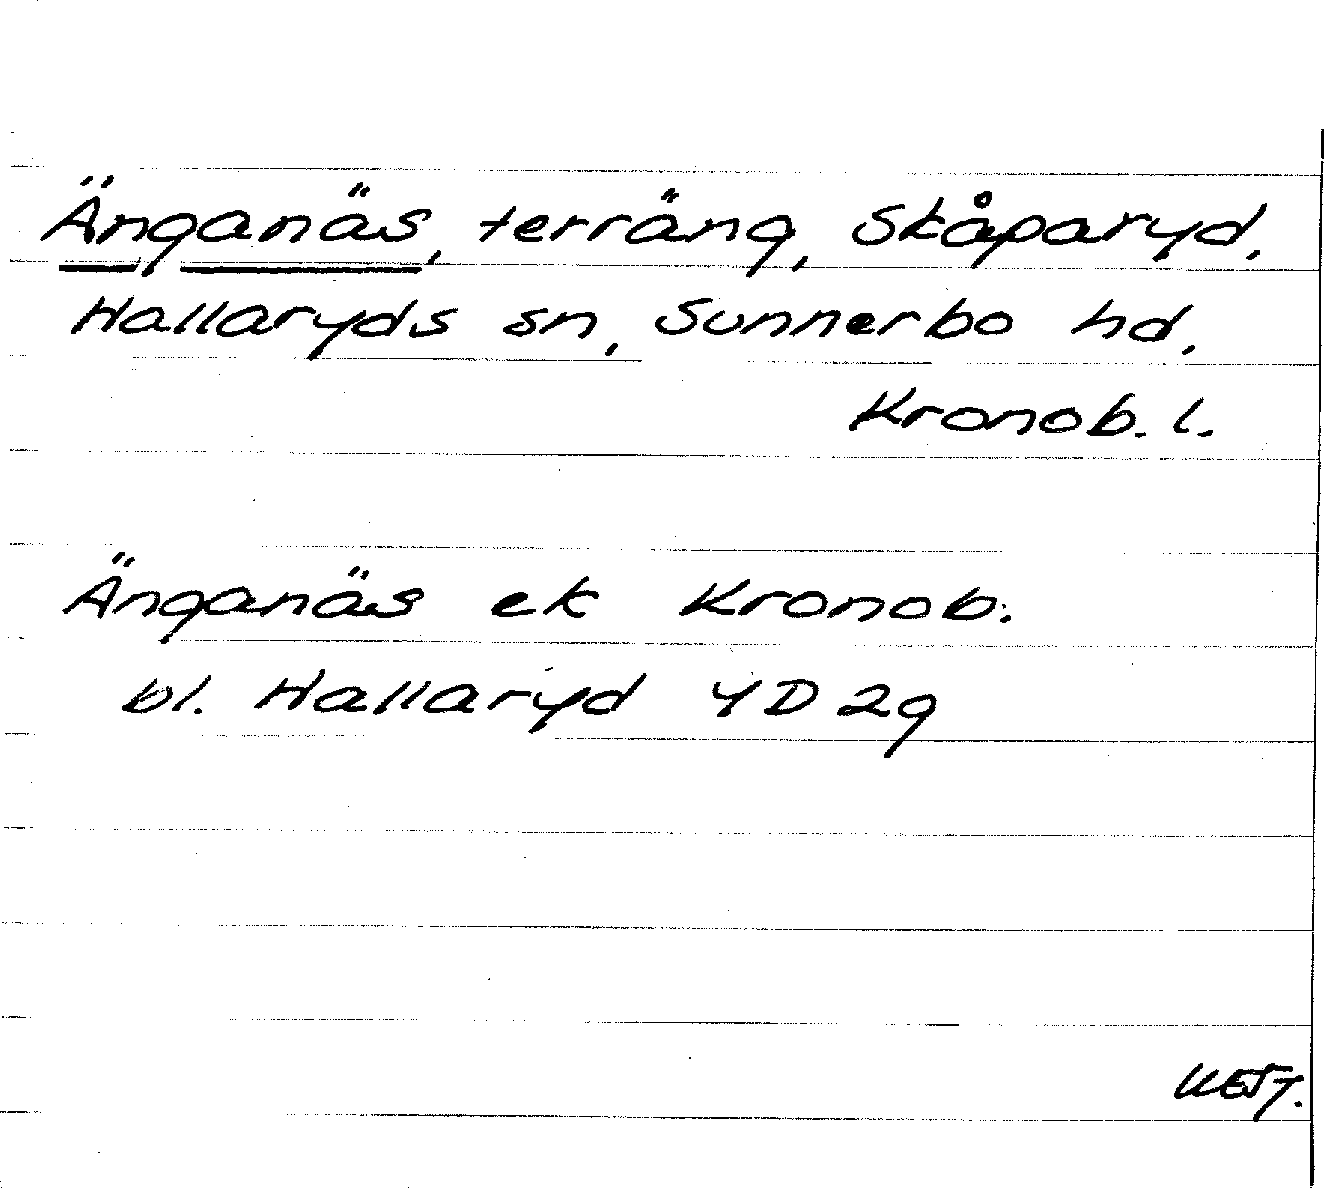 Änganäs, terräng, Skåparyd,
Hallaryds sn, Sunnerbo hd,
Kronob. l.
Änganäs ek Kronob.
bl. Hallaryd 4D 2g